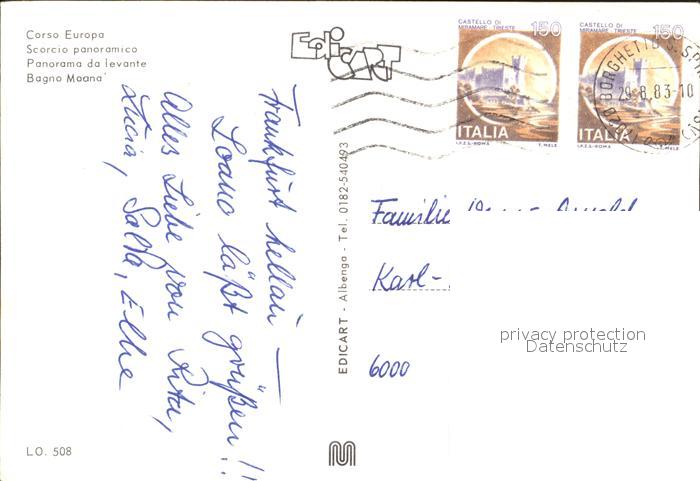 Corso Europa
Scorcio panoramico
Panorama da levante
Bagno Moana'
Edi CART
CASTELLO DI
MIRAMARE - TRIESTE
150
ITALIA
I.P.Z.S.-ROMA
T. MELE
CASTELLO DI
MIRAMARE - TRIESTE
150
ITALIA
I.P.Z.S.-ROMA
T. MELE
BORGHETTO S. SP
29.8.83-10
Frankfurt hellau —
Loano läßt grüßen!!
Alles Liebe von Rita,
Lucia, Salta, Elke
EDICART - Albenga - Tel. 0182-540493
Familie
Karl-
6000
privacy protection
Datenschutz
LO. 508